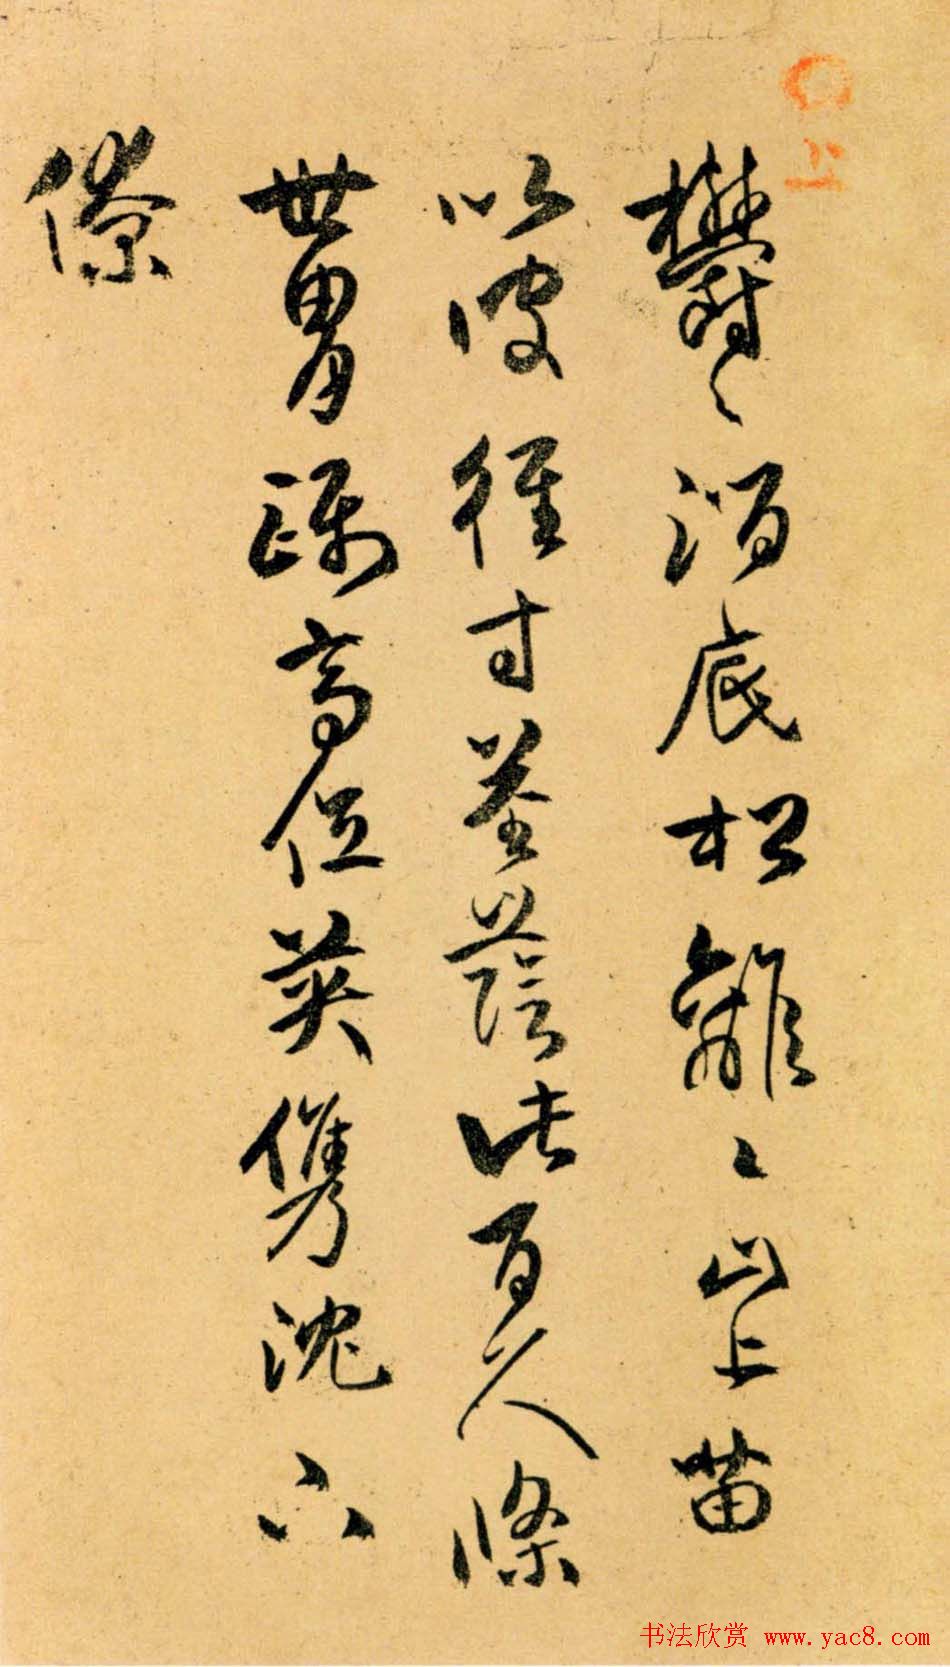 鬱〻澗底松離〻山上苗
以彼徑寸莖蔭此百尺條
世胄躡高位英儁沈下
僚
书法欣赏 www.yac8.com